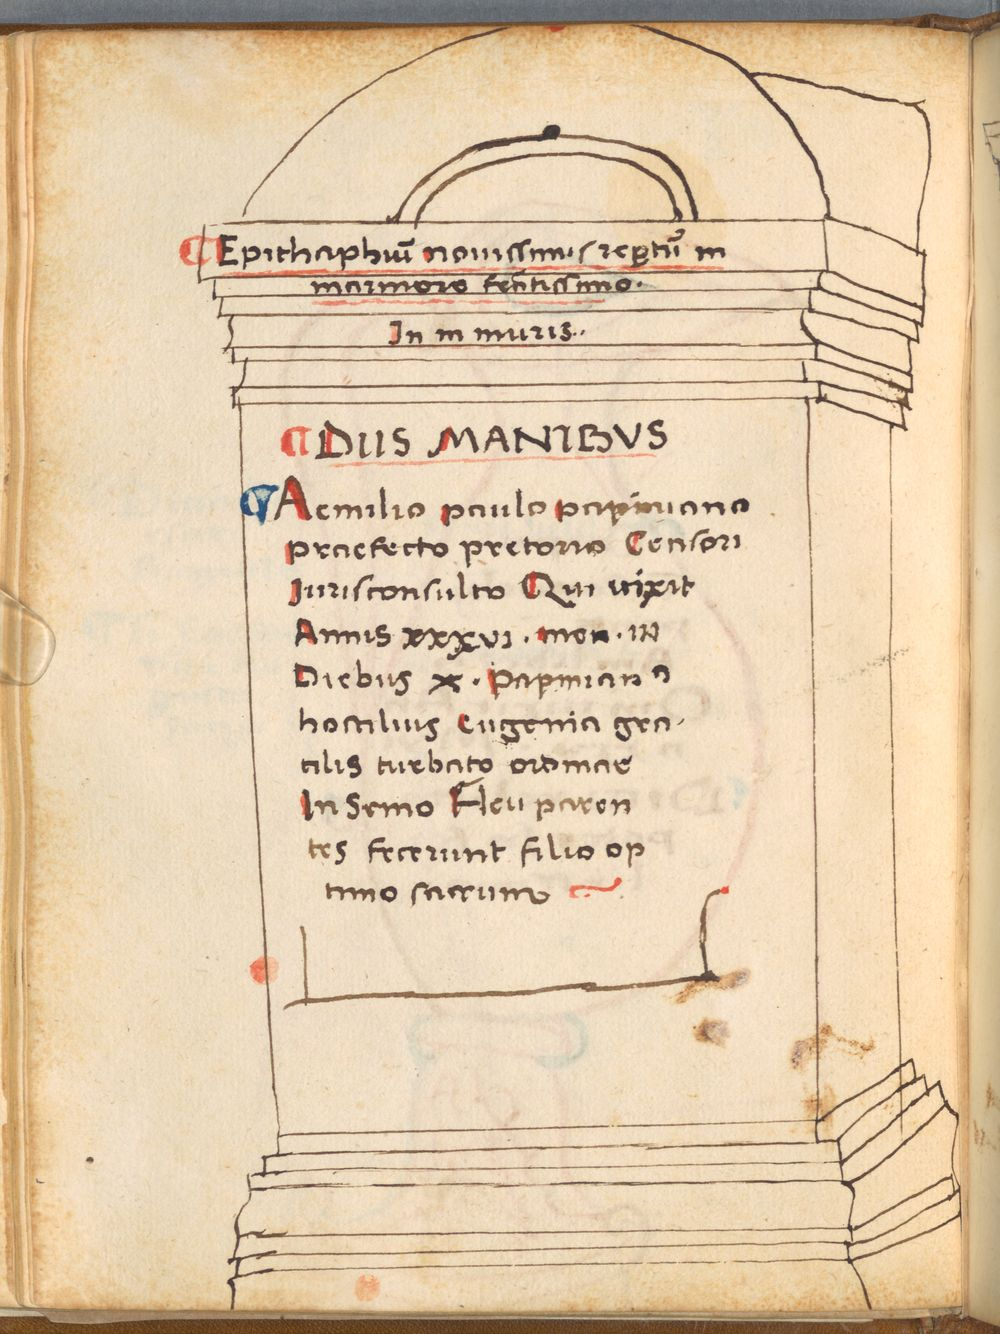 Epithaphiū nouissimis reptū in
marmore
In m muris..
DIIS MANIBVS
Aemilio paulo papiniano
praefecto pretorio Censori
Iurisconsulto Qui uixit
Annis xxxvi . men . III
Diebus x . Papinian o
hostilius Eugenia gra
cilis turbato ordinae
In Senio Heu paren
tes fecerunt filio op
timo sacrum